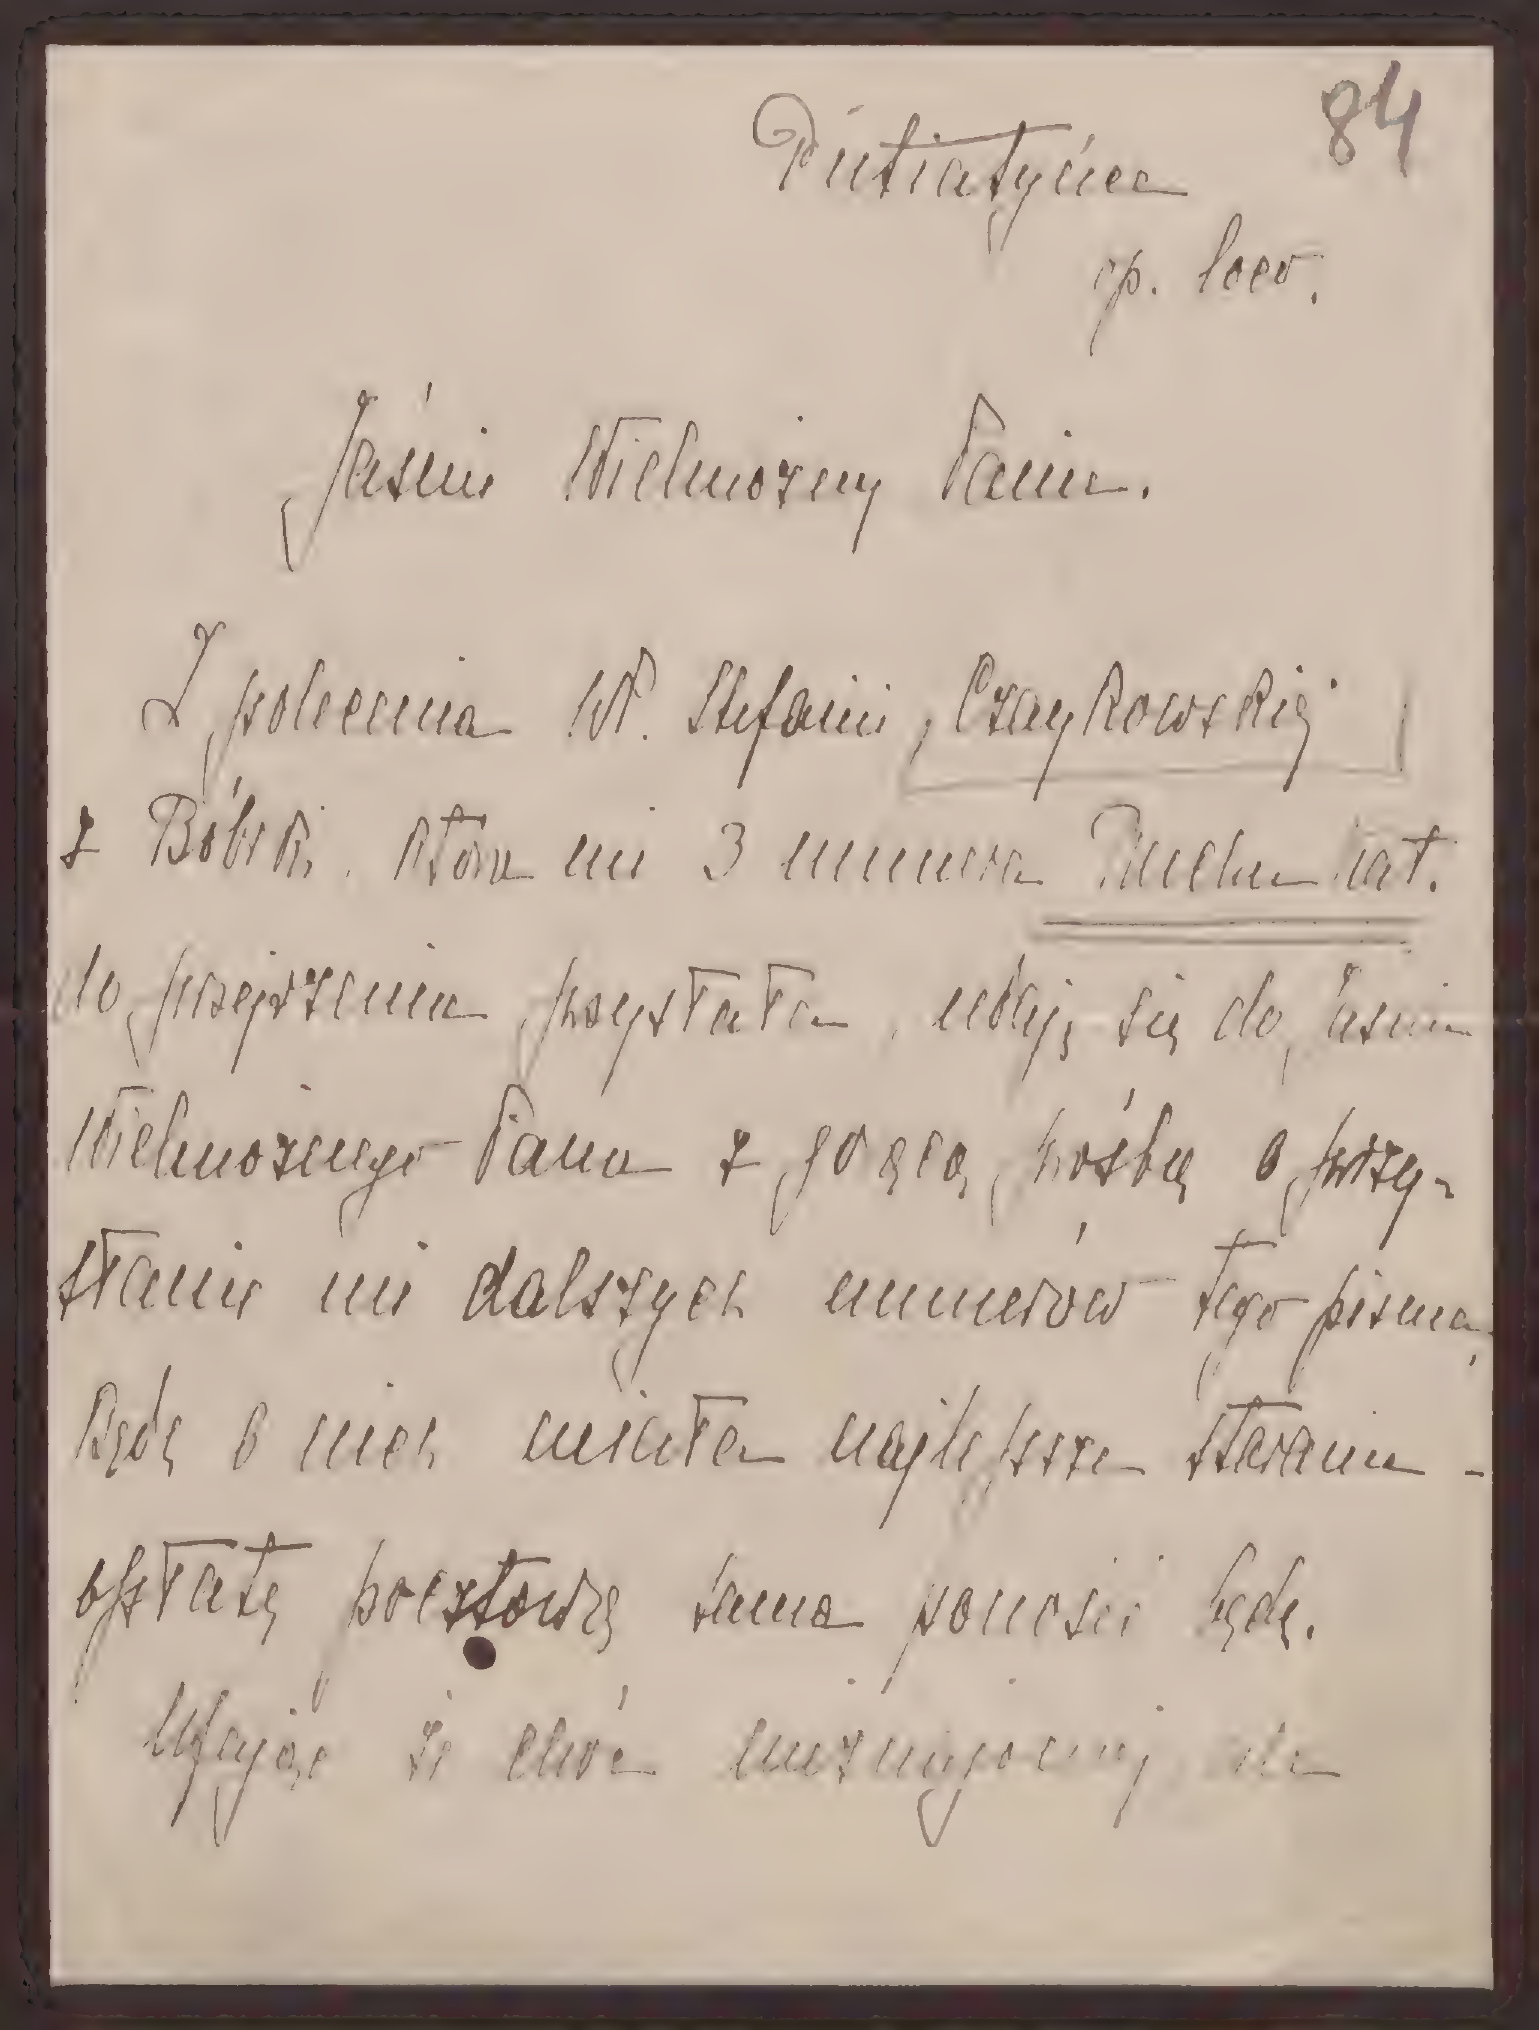 84
Putiatyńce
op. loco.
Jaśnie Wielmożny Panie.
Z polecenia WP. Stefanii Czaykowskiej
z Bóbrki, która mi 3 numera Ruchu kat.
do przejrzenia przysłała, udaję się do Jaśnie
Wielmożnego Pana z gorącą prośbą o przy-
słanie mi dalszych numerów tego pisma,
Będę o nich miała najlepsze starania -
opłatę pocztową sama ponosić będę.
Ufając że choć nieznajomej